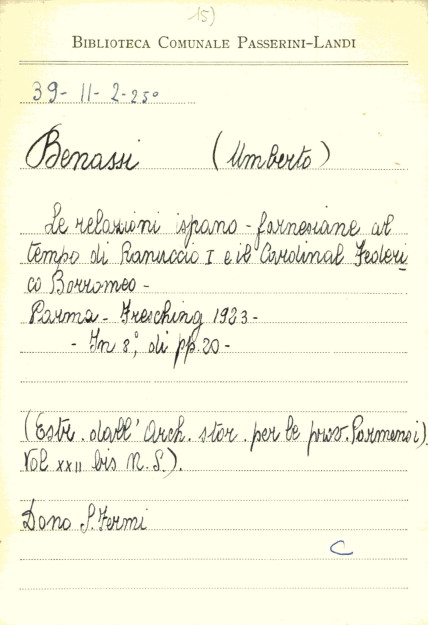 15)
BIBLIOTECA COMUNALE PASSERINI-LANDI
39-11-2-25°
Benassi (Umberto)
Le relazioni ispano-farnesiane al
tempo di Ranuccio I e il Cardinal Federi
co Borromeo-
Parma - Fresching 1923-
- In 8°, di pp. 20-
(Estr. dall' Arch. stor. per le prov. Parmensi).
Vol XXII bis N.S.).
Dono S. Fermi
C